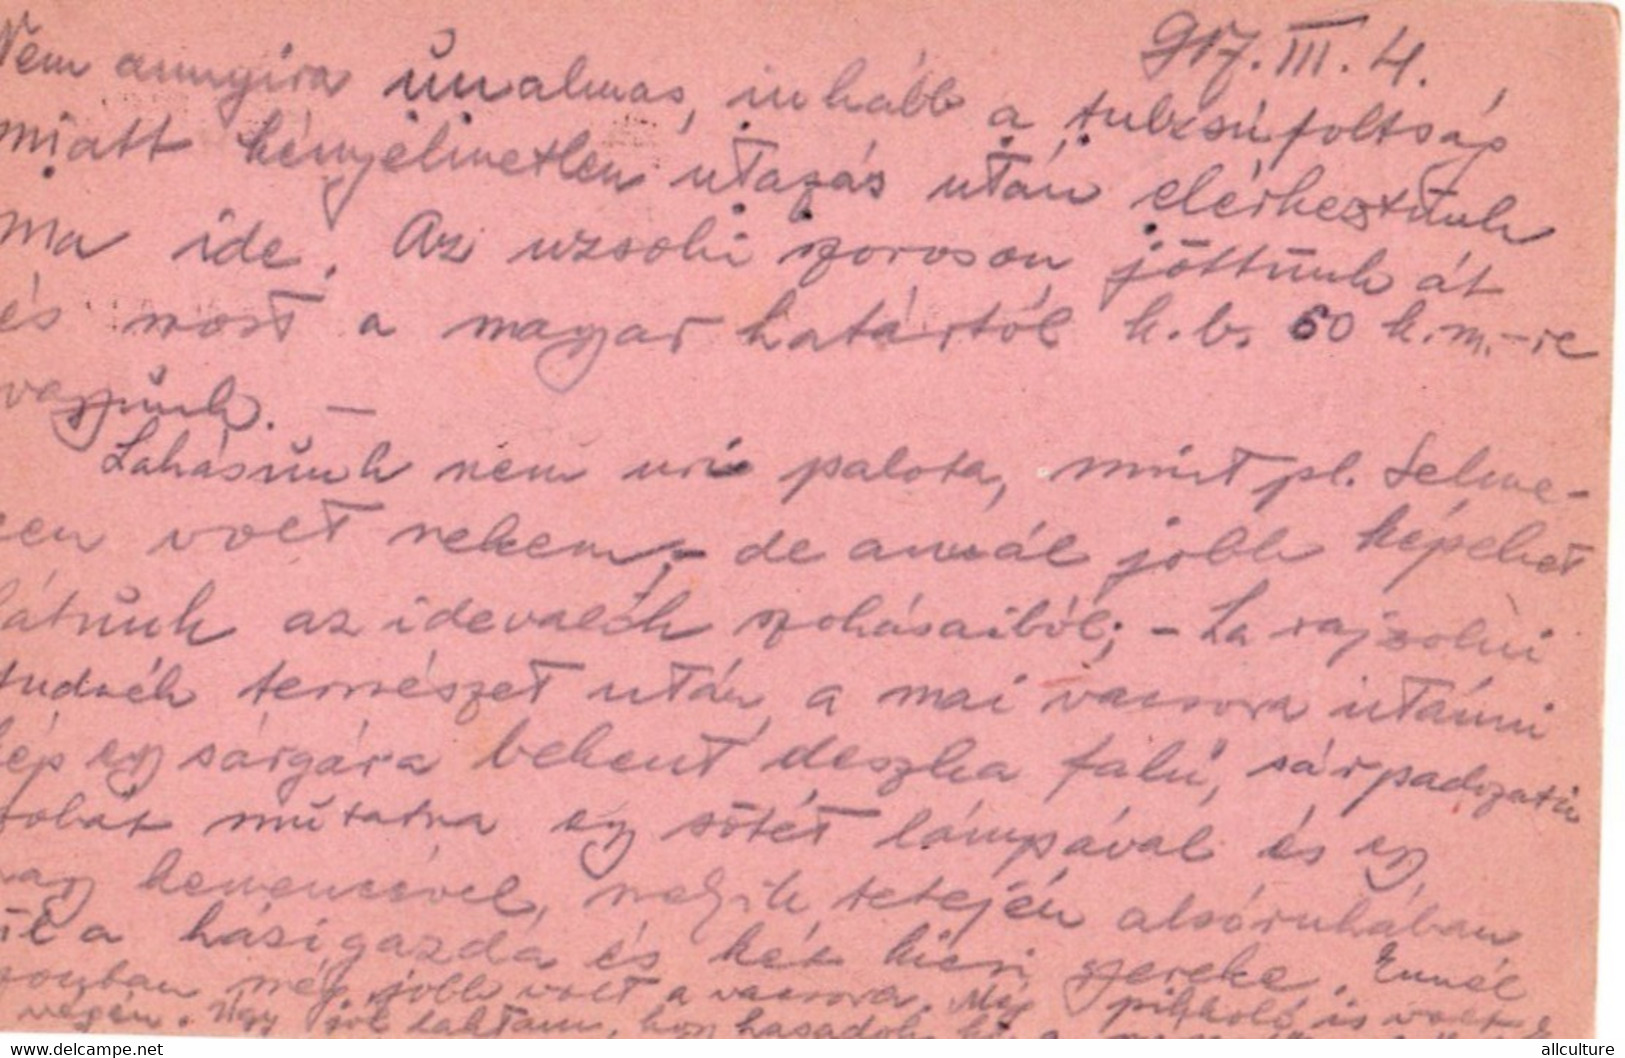 917. III. 4.
Nem annyira unalmas, inkább a tulzsúfoltság
miatt kényelmetlen utazás után elérkeztünk
ma ide. Az uzsoki szoroson jöttünk át
és most a magyar határtól k.b. 60 k.m.-re
vagyunk. —
Lakásunk nem uri palota, mint pl. Selme-
cen volt nekem, - de annál jobb képeket
látunk az idevalók szokásaiból; - Ha rajzolni
tudnék természet után, a mai vacsora utánni
kép egy sárgára bekent deszka falú, sárpadozatú
szobát mutatna egy sötét lámpával és egy
nagy kemencével, melyik tetején alsóruhában
ül a házigazda és két kicsi gyereke. Ennél
azonban még jobb volt a vacsora. Még pikkoló is volt a
végén. Úgy jól laktam, hogy hasadok
www.delcampe.net
allculture